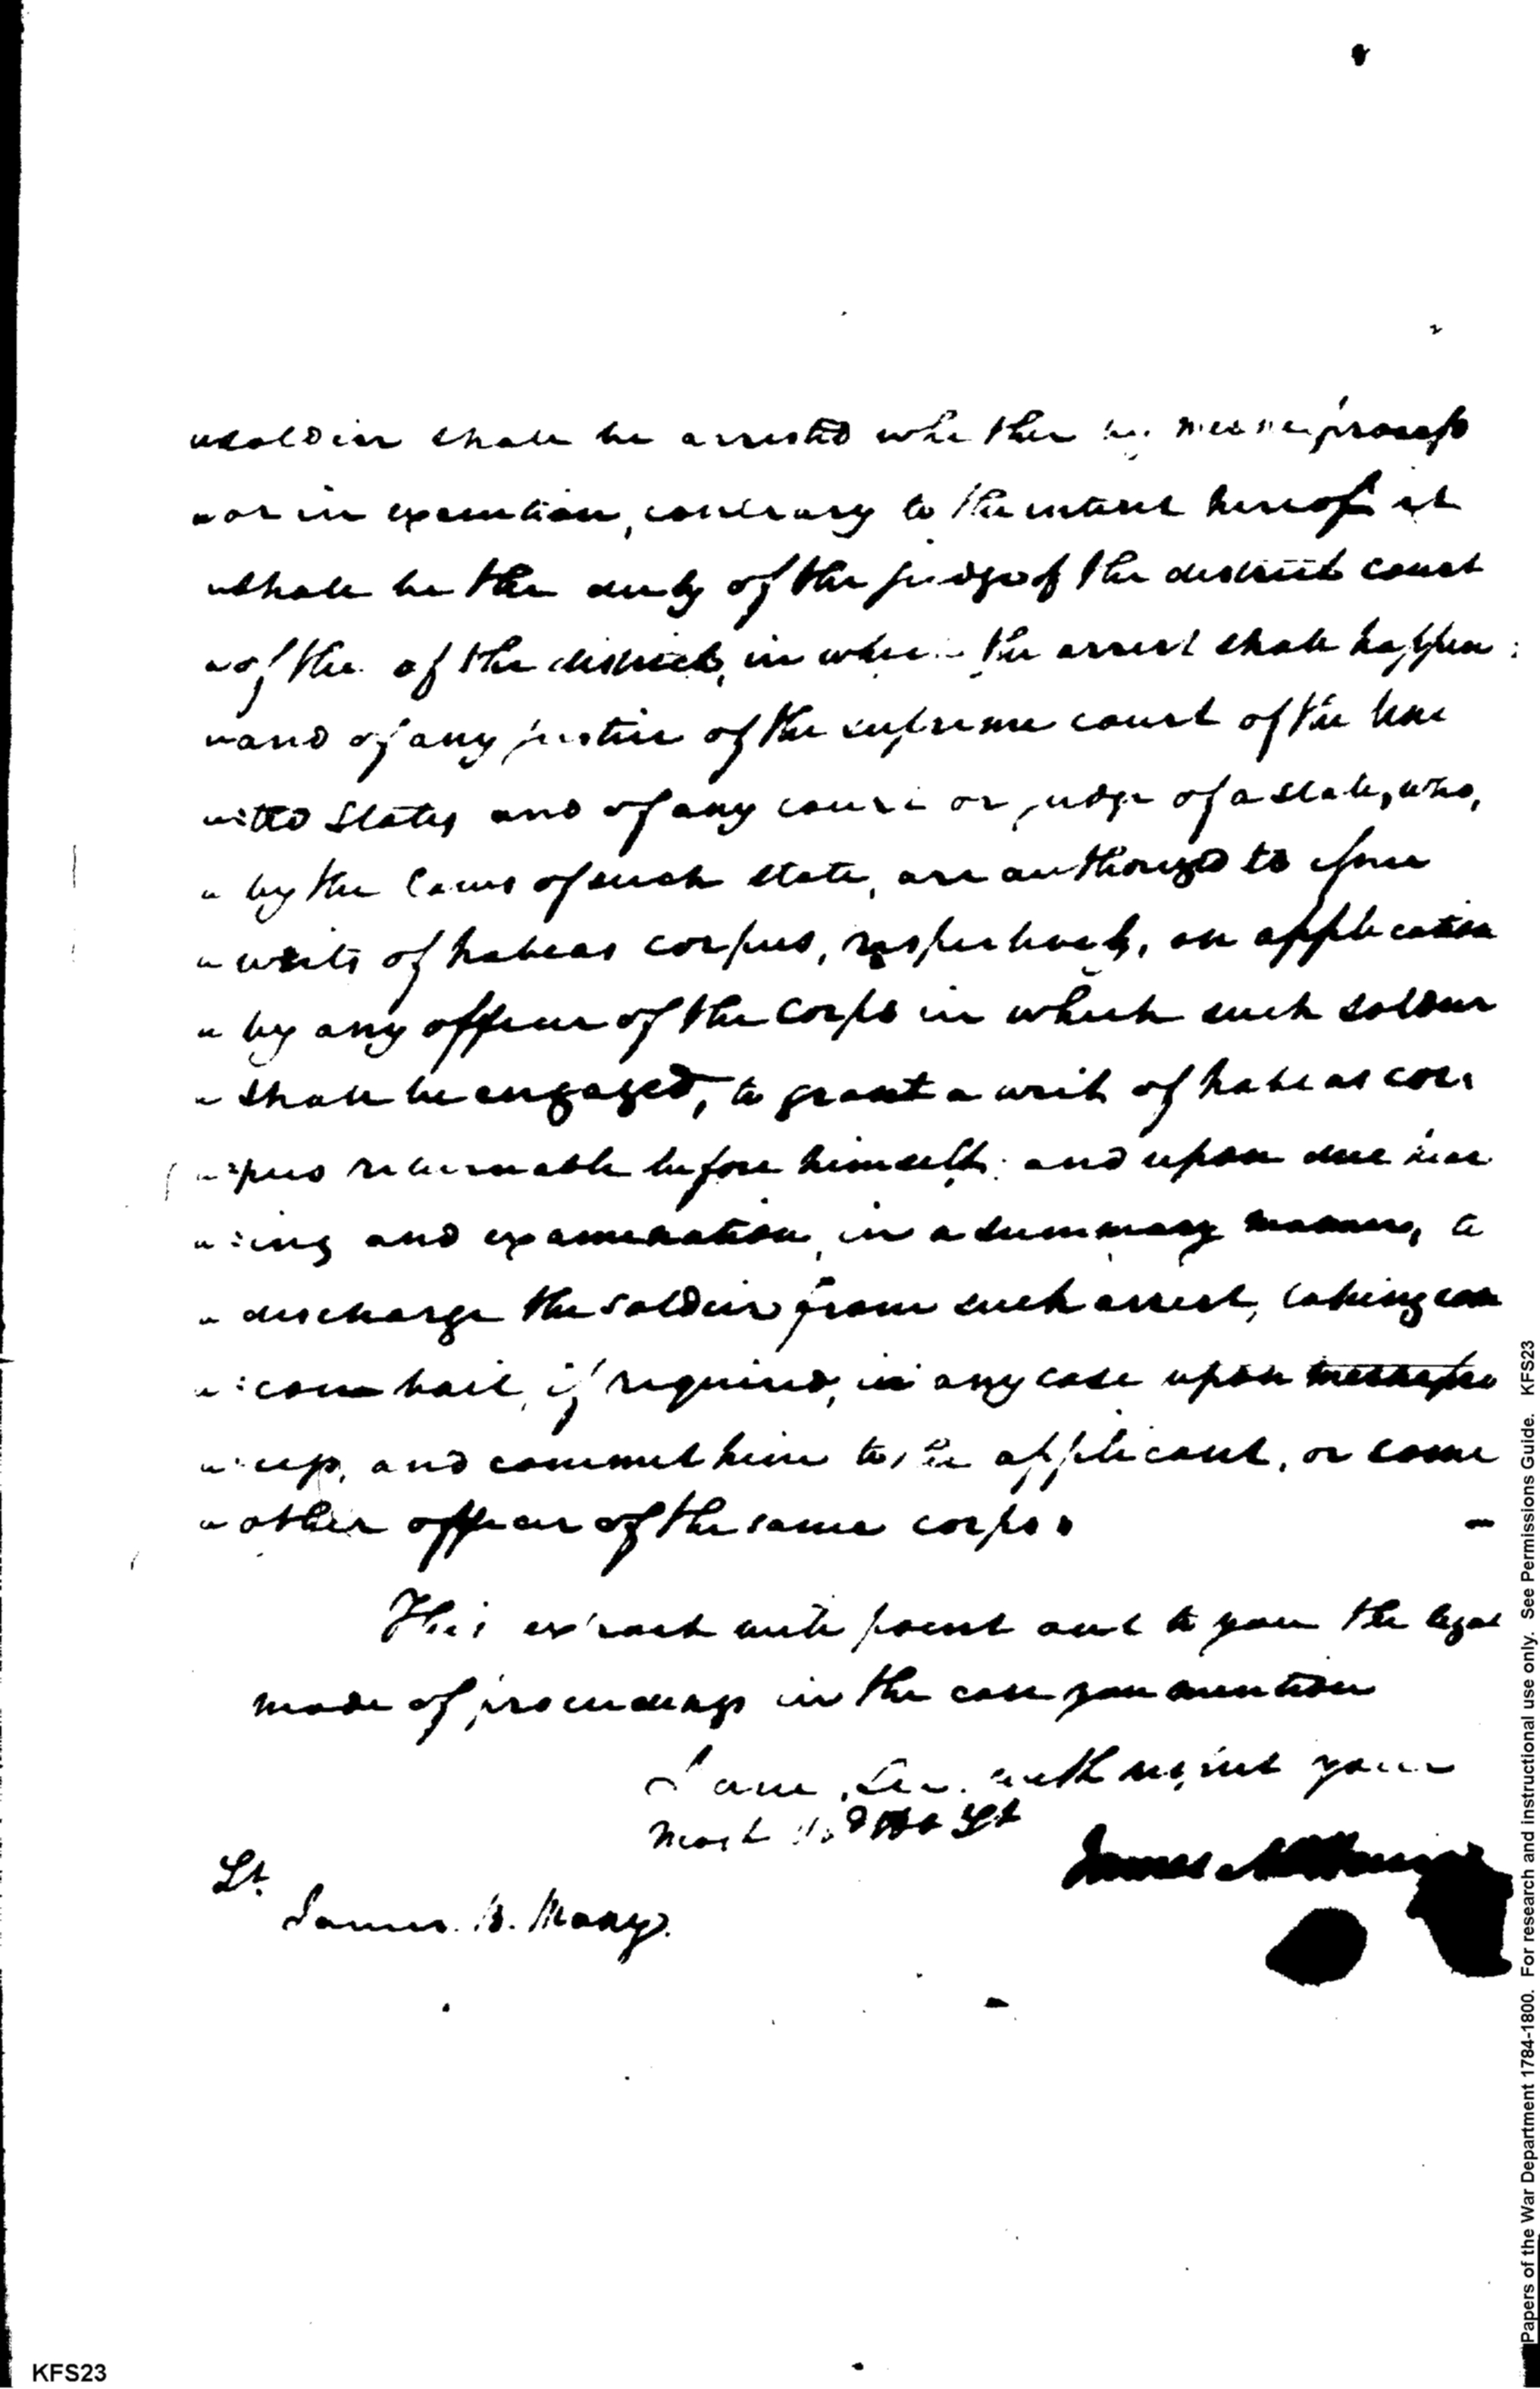 " soldier shall be arrested whether by mesne process
" or in execution, contrary to the intent hereof it
" shall be the duty of the judge of the district court
" of the of the district, in which the arrest shall happen
" and of any justice of the supreme court of the Uni
" :ited States and of any court or judge of a state, who,
" by the laws of such state, are authorized to issue
" writs of habeas corpus, respectively, on application
" by any officer of the corps in which such soldier
" shall be engaged, to grant a writ of habeas cor:
" :pus returnable before himself: and upon due hear
" :ing and examination, in a summary manner, to
" discharge the soldier from such arrest, taking com
" :com bail, if required, in any case upon mesne pro
" :cess, and commit him to the applicant, or some
" other officer of the same corps"
This extract will point out to you the legal
mode of proceedings in the case you mention
I am, Sir, with respect your
most Obd St
James McHenry
Lt.
James B. Many.
KFS23
Papers of the War Department 1784-1800. For research and instructional use only. See Permissions Guide. KFS23